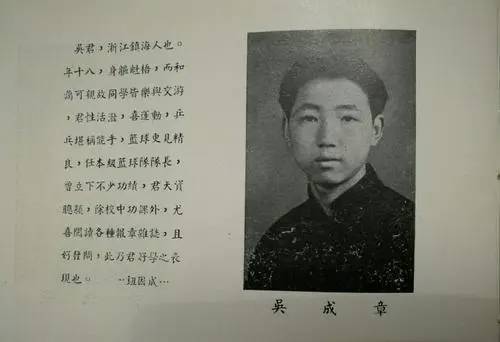 吳君，浙江鎮海人也。
年十八，身軀魁梧，而和
藹可親故同學皆樂與交游
，君性活潑，喜運動，乒
乓堪稱能手，籃球更見精
良，任本級籃球隊隊長，
曾立下不少功績，君天資
聰頴，除校中功課外，尤
喜閱讀各種報章雜誌，且
好發問，此乃君好學之表
現也。 …鈕因成…
吳成章